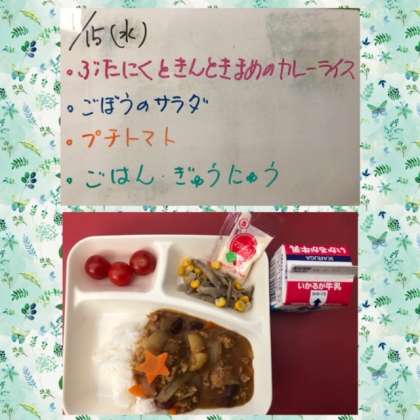 1/15(水)
・ぶたにくときんときまめのカレーライス
・ごぼうのサラダ
・プチトマト
・ごはん・ぎゅうにゅう
いかるが牛乳
IKARUGA
いかるが牛乳